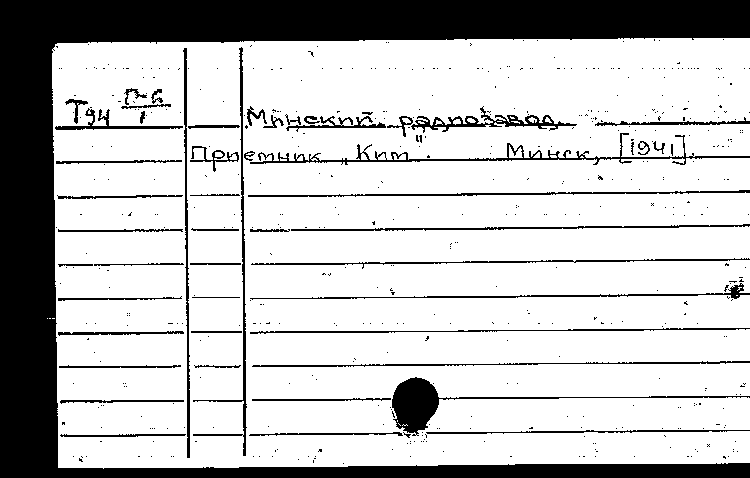 Т94 П-6/1
Минский радиозавод
Приемник „Кит". Минск, [1941].